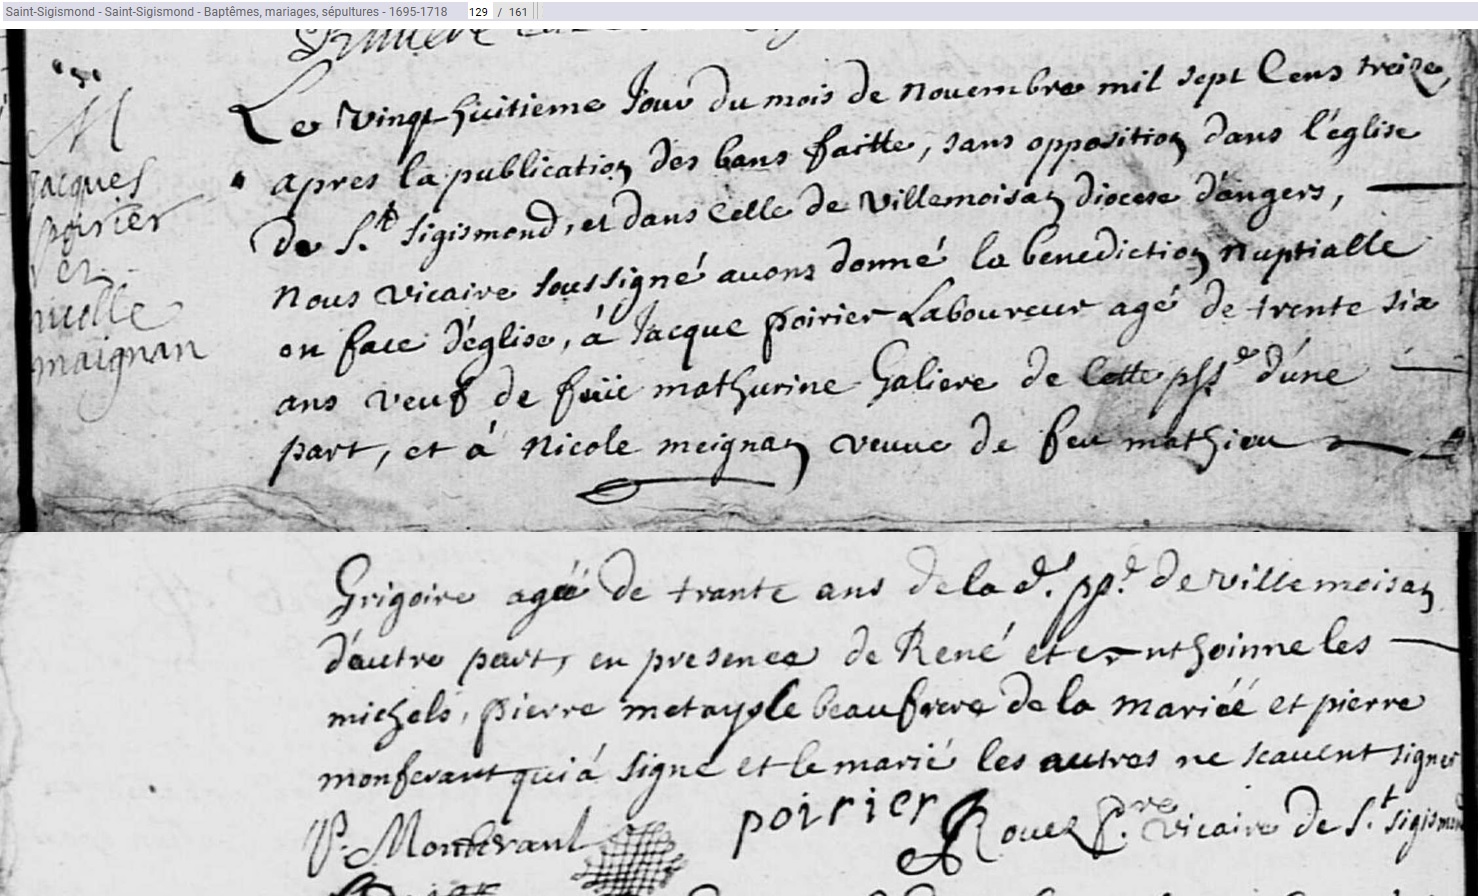 Saint-Sigismond - Saint-Sigismond - Baptêmes, mariages, sépultures - 1695-1718 129 / 161
M
jacques
poirier
et
nicolle
maignan
Le vingt huitieme Jour du mois de novembre mil sept Cens treize,
apres la publication des bans faitte, sans opposition dans l'église
de St. Sigismond, et dans Celle de villemoisan diocese d'angers,
nous vicaire soussigné avons donné la benediction nuptialle
en face d'église, à Jacque poirier Laboureur agé de trente six
ans veuf de feüe mathurine Galiere de Cette psse d'une
part, et à Nicole meignan veuve de feu mathieu
Grigoire agéé de trante ans de la de. pp.e de villemoisan
d'autre part, en presence de René et enthoinne les
michels, pierre metayée beaufrere de la mariéé et pierre
monferant qui à signé et le marié les autres ne scavent signer
P. Montferant
poirier
Rouer P.re vicaire de St. Sigismond